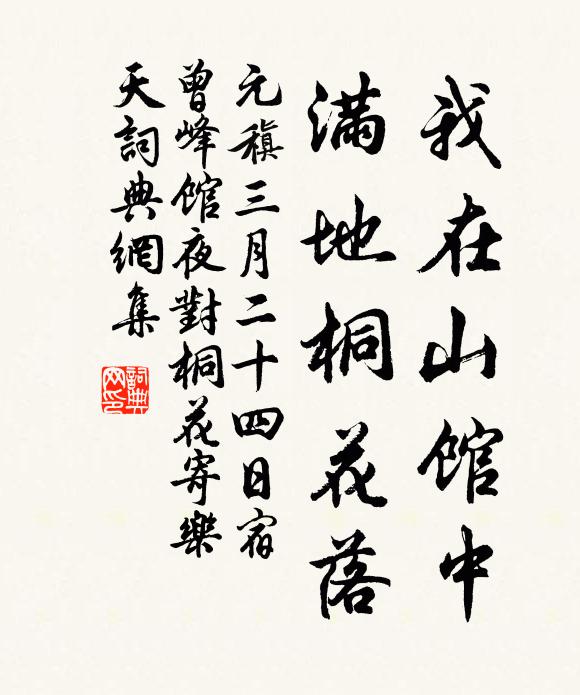 我在山館中
滿地桐花落
元稹三月二十四日宿
曾峰館夜對桐花寄樂
天詞典網集
詞典网印